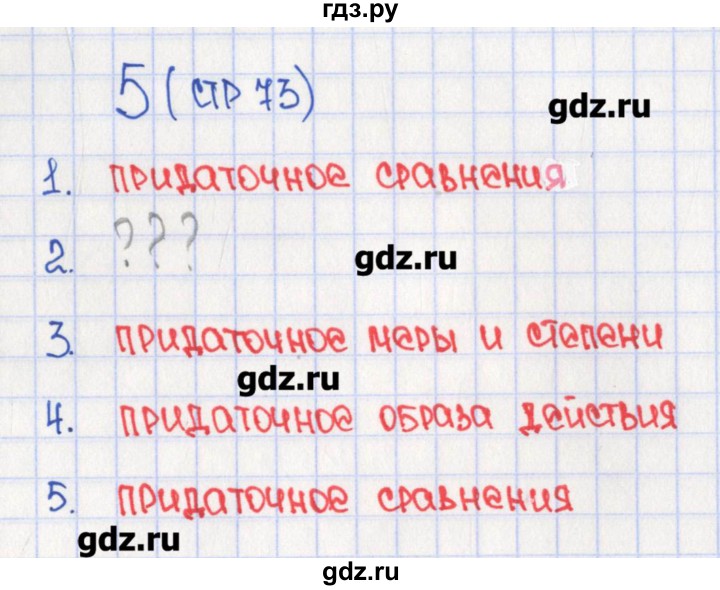 гдз.ру
5 (стр 73)
gdz.ru
1. придаточное сравнения
2. ???
gdz.ru
3. придаточное меры и степени
gdz.ru
4. придаточное образа действия
5. придаточное сравнения
gdz.ru
gdz.ru